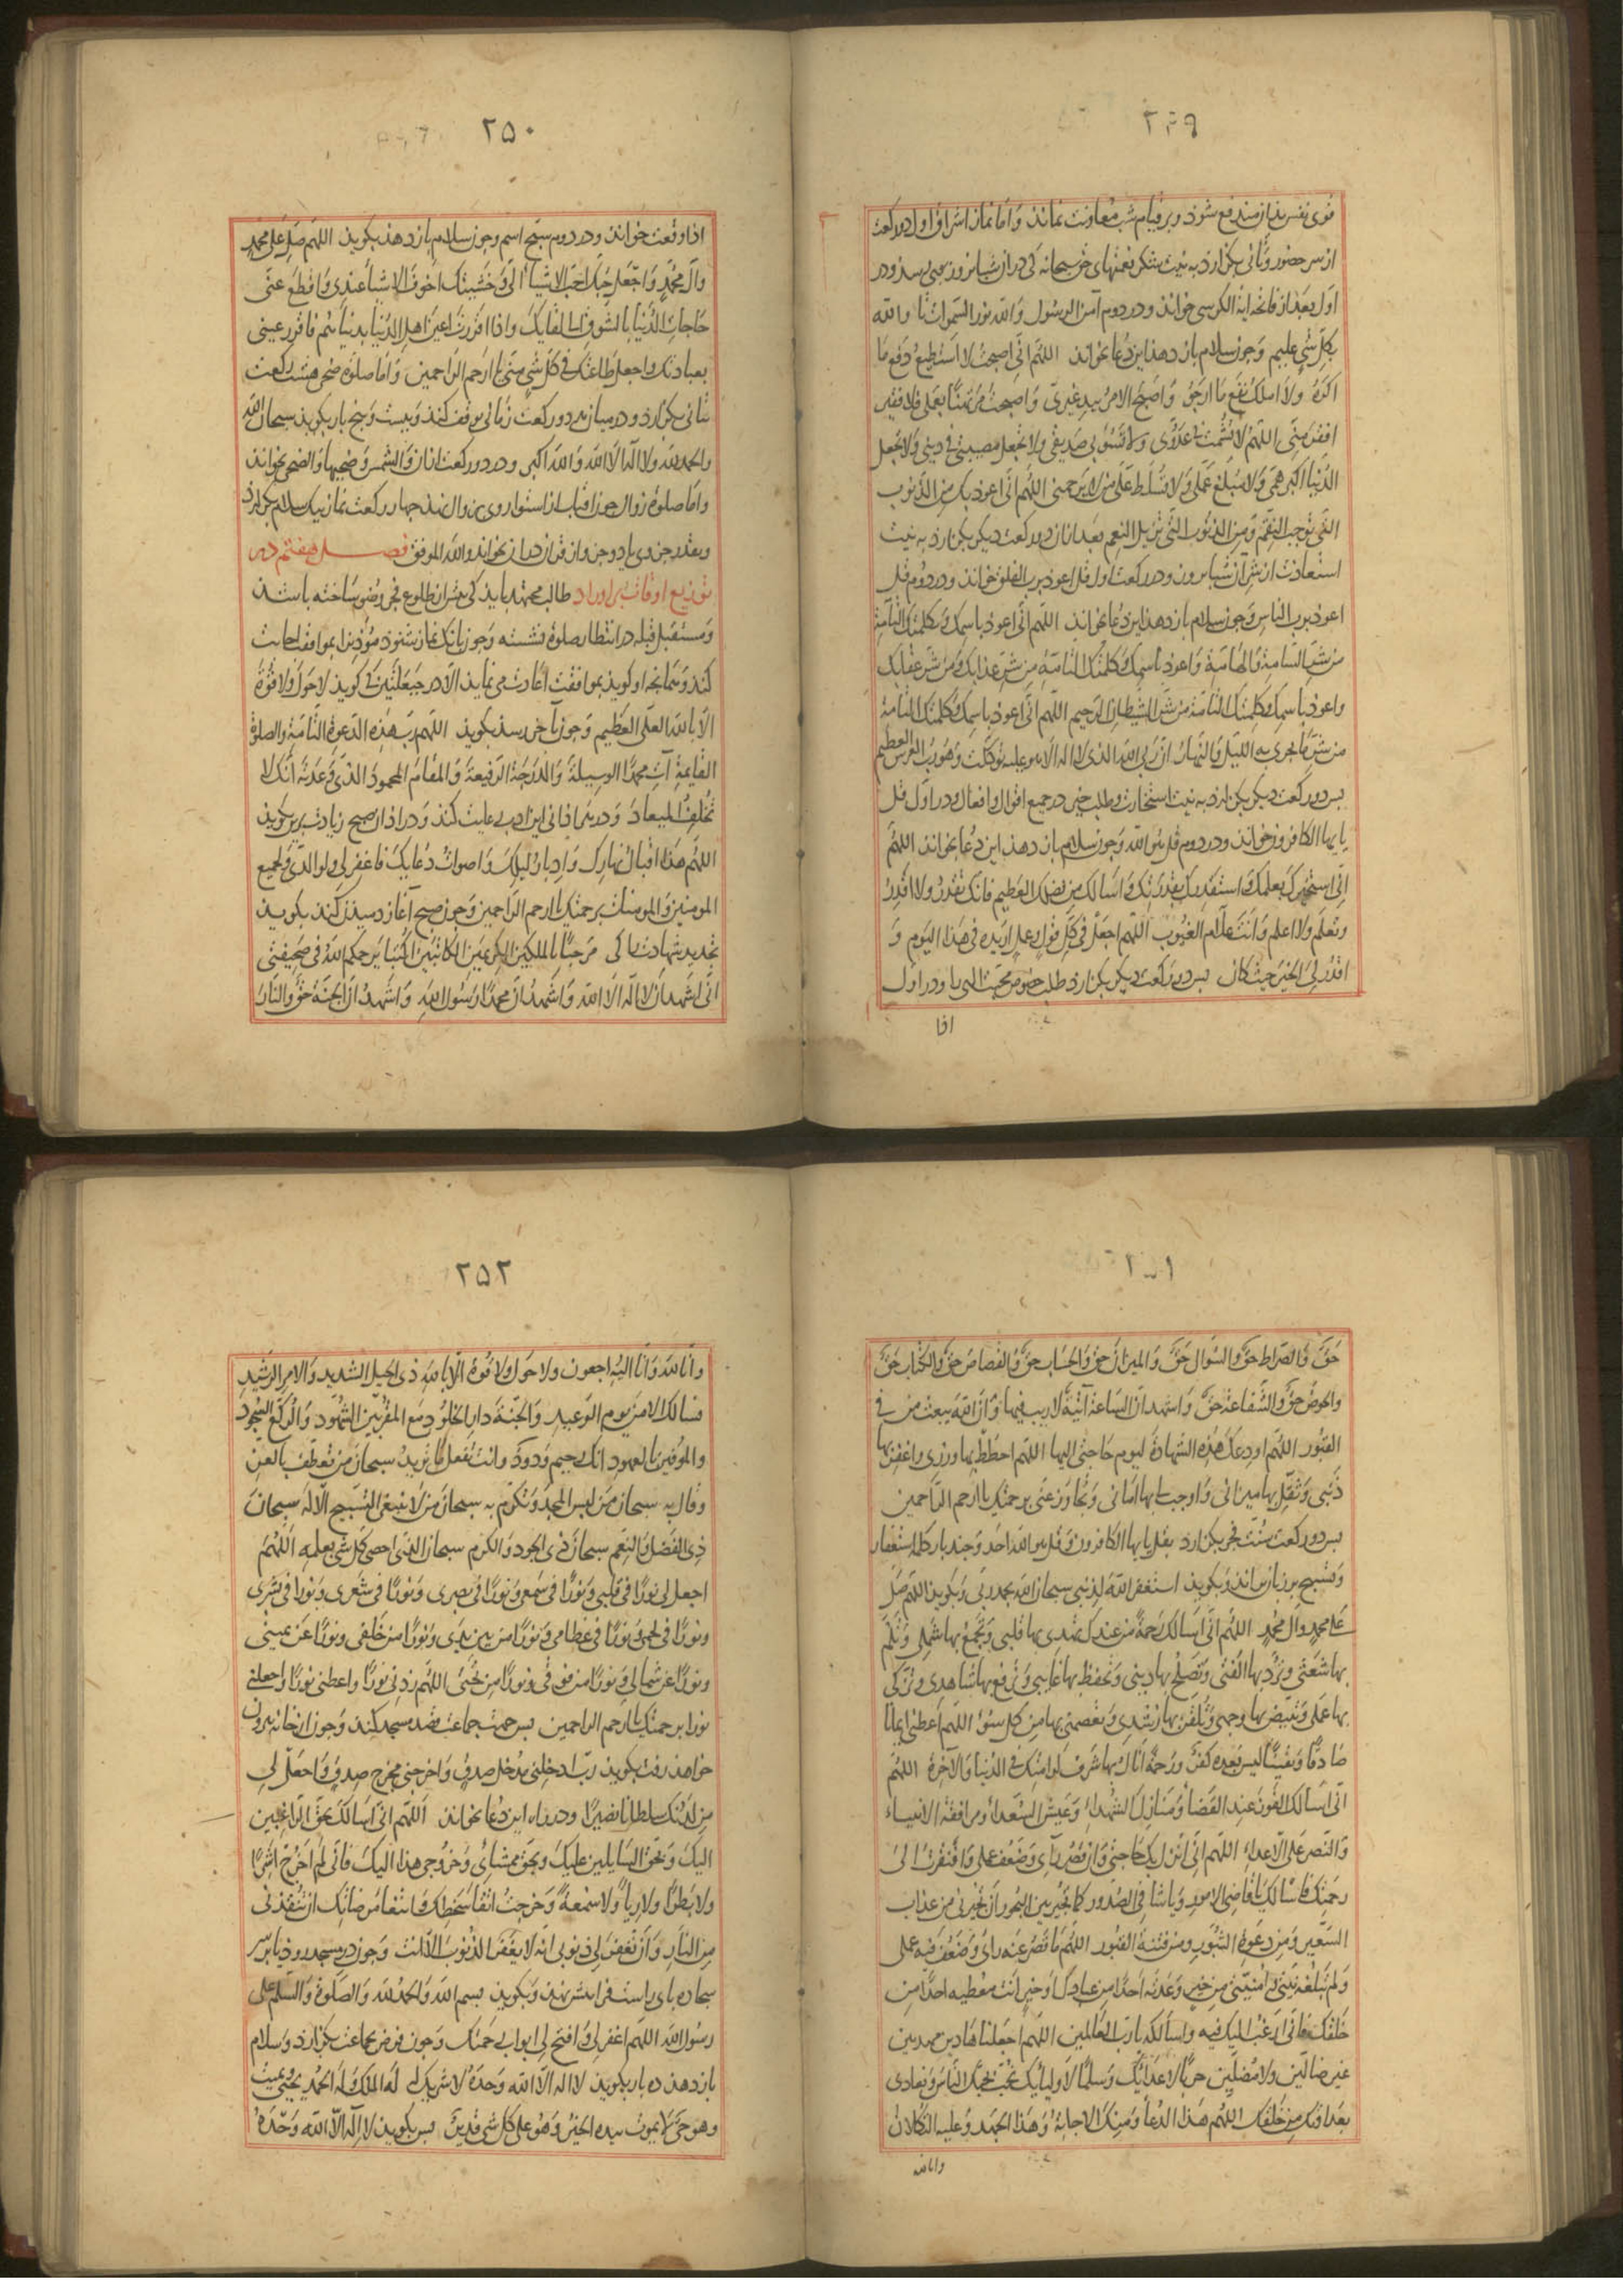 ٢٤٩
قوی نفس بدان مندفع شود و بر قیام شب معاونت نماید و اما نماز اشراق اول دو رکعت
از سر حضور و تأنی بگزارد به نیت شکر نعمتهای حق سبحانه کی در آن شبانروز بوی رسد و در
اول بعد از فاتحه آیة الکرسی خواند و در دوم آمن الرسول و الله نور السموات تا والله
بکل شی علیم و چون سلام باز دهد این دعا بخواند اللهم انی اصبحت لا استطیع دفع ما
اکره و لا املک نفع ما ارجو و اصبح الامر بید غیری و اصبحت مرتهنا بعملی فلا فقیر
افقر منی اللهم لا تشمت بی عدوی و لا تسؤ بی صدیقی و لا تجعل مصیبتی فی دینی و لا تجعل
الدنیا اکبر همی و لا مبلغ علمی و لا تسلط علی من لا یرحمنی اللهم انی اعوذ بک من الذنوب
التی توجب النقم و من الذنوب التی تزیل النعم بعد از آن دو رکعت دیگر بگزارد به نیت
استعاذت از شر آن شبانروز و در رکعت اول قل اعوذ برب الفلق خواند و در دوم قل
اعوذ برب الناس و چون سلام باز دهد این دعا بخواند اللهم انی اعوذ باسمک و کلمتک التامة
من شر السامة و الهامة و اعوذ باسمک و کلمتک التامة من شر عذابک و من شر عقابک
و اعوذ باسمک و کلمتک التامة من شر الشیطان الرجیم اللهم انی اعوذ باسمک و کلمتک التامة
من شر ما یجری به اللیل و النهار ان ربی الله الذی لا اله الا هو علیه توکلت و هو رب العرش العظیم
پس دو رکعت دیگر بگزارد به نیت استخارت و طلب خیر در جمیع اقوال و افعال و در اول قل
یا ایها الکافرون خواند و در دوم قل هو الله و چون سلام باز دهد این دعا بخواند اللهم
انی استخیرک بعلمک و استقدرک بقدرتک و اسألک من فضلک العظیم فانک تقدر و لا اقدر
و تعلم و لا اعلم و انت علام الغیوب اللهم اجعل فی کل قول و عمل اریده فی هذا الیوم و
اقدر لی الخیر حیث کان پس دو رکعت دیگر بگزارد طلب خصوص محبت الهی را و در اول
اذا
٢٥٠
اذا وقعت خواند و در دوم سبح اسم و چون سلام باز دهد بگوید اللهم صل علی محمد
و آل محمد و اجعل حبک احب الاشیاء الی و خشیتک اخوف الاشیاء عندی و اقطع عنی
حاجات الدنیا بالشوق الی لقایک و اذا اقررت اعین اهل الدنیا بدنیاهم فاقرر عینی
بعبادتک و اجعل طاعتک فی کل شی منی یا ارحم الراحمین و اما صلوة ضحی هشت رکعت
بتانی بگزارد و در میان هر دو رکعت زمانی توقف کند و بیست و پنج بار بگوید سبحان الله
والحمد لله و لا اله الا الله و الله اکبر و در دو رکعت از آن و الشمس و ضحیها و الضحی بخواند
و اما صلوة زوال چون آفتاب از استوا روی بزوال نهد چهار رکعت نماز بیک سلام بگزارد
و بقدر جزوی یا دو جزو از قرآن در آن بخواند والله الموفق فصل هفتم در
توزیع اوقات بر اوراد طالب مجتهد باید کی پیش از طلوع فجر وضو ساخته باشد
و مستقبل قبله در انتظار صلوة نشسته و چون بانک نماز شنود مؤذن را بموافقت اجابت
کند و همانچه او گوید بموافقت اعادت می نماید الا در حیعلتین کی گوید لا حول و لا قوة
الا بالله العلی العظیم و چون بآخر رسد بگوید اللهم رب هذه الدعوة التامة و الصلوة
القایمة آت محمدا الوسیلة و الدرجة الرفیعة و المقام المحمود الذی وعدته انک لا
تخلف المیعاد و در همه اذانی این ادب رعایت کند و در اذان صبح زیادت برین بگوید
اللهم هذا اقبال نهارک و ادبار لیلک و اصوات دعایک فاغفر لی و لوالدی و لجمیع
المومنین و المومنات برحمتک یا ارحم الراحمین و چون صبح آغاز دمیدن کند بگوید
تجدید شهادت را کی مرحبا بالملکین الکریمین الکاتبین اکتبا یرحمکم الله فی صحیفتی
انی اشهد ان لا اله الا الله و اشهد ان محمدا رسول الله و اشهد ان الجنة حق و النار
٢٥١
حق و الصراط حق و السوال حق و المیزان حق و الحساب حق و القصاص حق و الکتاب حق
و الحوض حق و الشفاعة حق و اشهد ان الساعة آتیة لا ریب فیها و ان الله یبعث من فی
القبور اللهم اودعک هذه الشهادة لیوم حاجتی الیها اللهم احطط بها وزری و اغفر بها
ذنبی و ثقل بها میزانی و اوجب لی بها امانی و تجاوز عنی برحمتک یا ارحم الراحمین
پس دو رکعت سنت فجر بگزارد بقل یا ایها الکافرون و قل هو الله احد و چند بار کلمه استغفار
و تسبیح بر زبان راند و بگوید استغفر الله لذنبی سبحان الله بحمد ربی و بگوید اللهم صل
علی محمد و آل محمد اللهم انی اسالک رحمة من عندک تهدی بها قلبی و تجمع بها شملی و تلم
بها شعثی و ترد بها الفتی و تصلح بها دینی و تحفظ بها غایبی و ترفع بها شاهدی و تزکی
بها عملی و تبیض بها وجهی و تلقنی بها رشدی و تعصمنی بها من کل سوء اللهم اعطنی ایمانا
صادقا و یقینا لیس بعده کفر و رحمة انال بها شرف کرامتک فی الدنیا و الآخرة اللهم
انی اسالک الفوز عند القضاء و منازل الشهداء و عیش السعداء و مرافقة الانبیاء
و النصر علی الاعداء اللهم انی انزل بک حاجتی و ان قصر رأیی و ضعف عملی و افتقرت الی
رحمتک فاسالک یا قاضی الامور و یا شافی الصدور کما تجیر بین البحور ان تجیرنی من عذاب
السعیر و من دعوة الثبور و من فتنة القبور اللهم ما قصر عنه رأیی و ضعف فیه عملی
و لم تبلغه نیتی و امنیتی من خیر وعدته احدا من عبادک او خیر انت معطیه احدا من
خلقک فانی ارغب الیک فیه و اسألکه یا رب العالمین اللهم اجعلنا هادین مهدیین
غیر ضالین و لا مضلین حربا لاعدائک و سلما لاولیائک نحب بحبک الناس و نعادی
بعداوتک من خلقک اللهم هذا الدعاء و منک الاجابة و هذا الجهد و علیک التکلان
وانا لله
٢٥٢
و انا لله و انا الیه راجعون و لا حول و لا قوة الا بالله ذی الحبل الشدید و الامر الرشید
نسالک الامن یوم الوعید و الجنة دار الخلود مع المقربین الشهود و الرکع السجود
و الموفین بالعهود انک رحیم ودود و انت تفعل ما ترید سبحان من تعطف بالعز
و قال به سبحان من لبس المجد و تکرم به سبحان من لا ینبغی التسبیح الا له سبحان
ذی الفضل و النعم سبحان ذی الجود و الکرم سبحان الذی احصی کل شی بعلمه اللهم
اجعل لی نورا فی قلبی و نورا فی سمعی و نورا فی بصری و نورا فی شعری و نورا فی بشری
و نورا فی لحمی و نورا فی عظامی و نورا من بین یدی و نورا من خلفی و نورا عن یمینی
و نورا عن شمالی و نورا من فوقی و نورا من تحتی اللهم زدنی نورا و اعطنی نورا و اجعلنی
نورا برحمتک یا ارحم الراحمین پس جهت جماعت قصد مسجد کند و چون از خانه بیرون
خواهد رفت بگوید رب ادخلنی مدخل صدق و اخرجنی مخرج صدق و اجعل لی
من لدنک سلطانا نصیرا و در راه این دعا بخواند اللهم انی اسالک بحق الراغبین
الیک و بحق السایلین علیک و بحق ممشای و خروجی هذا الیک فانی لم اخرج اشرا
و لا بطرا و لا ریاء و لا سمعة و خرجت اتقاء سخطک و ابتغاء مرضاتک ان تنقذنی
من النار و ان تغفر لی ذنوبی انه لا یغفر الذنوب الا انت و چون در مسجد رود یا بر سر
سجاده پای راست فرا پیش نهد و بگوید بسم الله و الحمد لله و الصلوة و السلم علی
رسول الله اللهم اغفر لی و افتح لی ابواب رحمتک و چون فرض بجماعت بگزارد و سلام
باز دهد ده بار بگوید لا اله الا الله وحده لا شریک له له الملک و له الحمد یحیی و یمیت
و هو حی لا یموت بیده الخیر و هو علی کل شی قدیر پس بگوید لا اله الا الله وحده